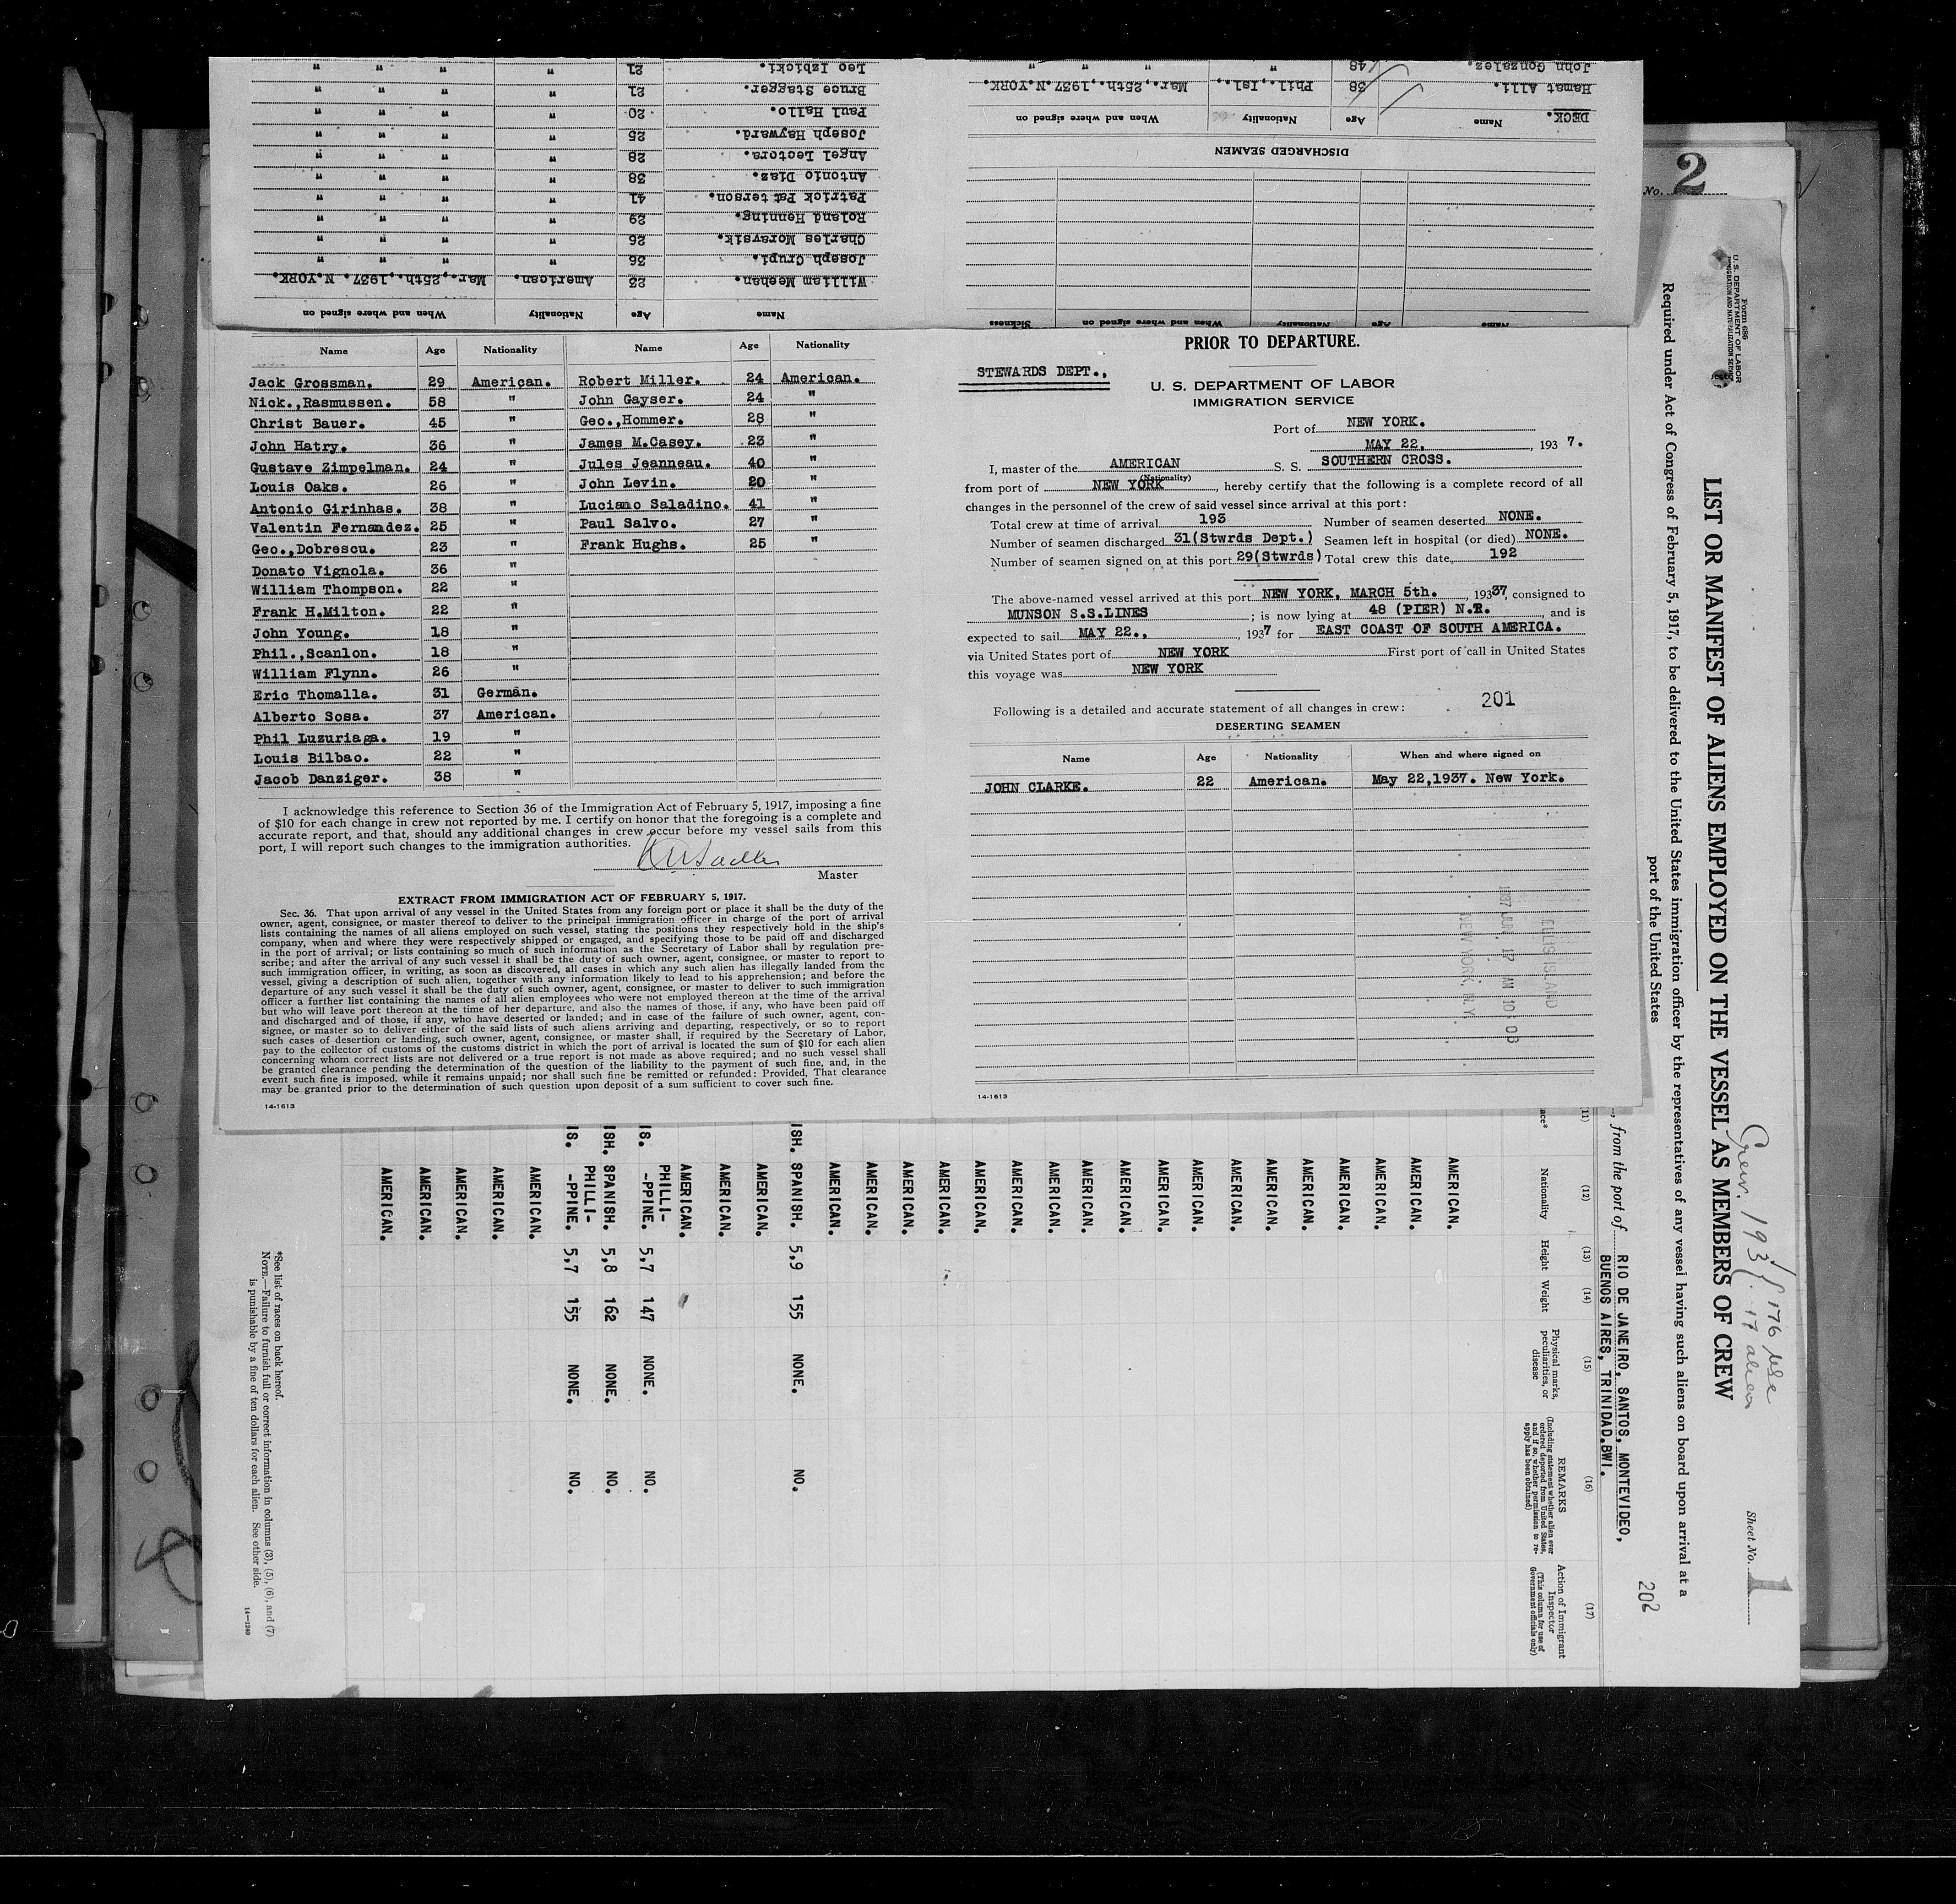 Name Age Nationality When and where signed on
William Meehan. 23 American. Mar.,25th.,1937. N.YORK.
Joseph Crupi. 36 " " " "
Charles Moravsik. 26 " " " "
Roland Henning. 29 " " " "
Patrick Patterson. 41 " " " "
Antonio Diaz. 38 " " " "
Angel Lectora. 28 " " " "
Joseph Hayward. 25 " " " "
Paul Hallo. 20 " " " "
Bruce Stagger. 21 " " " "
Leo Izbicki. 21 " " " "
Name Age Nationality When and where signed on Sickness
DISCHARGED SEAMEN
Name Age Nationality When and where signed on
DECK.
Hamat Alli. 38 Phil.,Isl., Mar.,25th.,1937.N.YORK.
John Gonzalez. 48 " " "
Name Age Nationality Name Age Nationality
Jack Grossman. 29 American. Robert Miller. 24 American.
Nick.,Rasmussen. 58 " John Gayser. 24 "
Christ Bauer. 45 " Geo.,Hommer. 28 "
John Hatry. 36 " James M.Casey. 23 "
Gustave Zimpelman. 24 " Jules Jeanneau. 40 "
Louis Oaks. 26 " John Levin. 20 "
Antonio Girinhas. 38 " Luciano Saladino. 41 "
Valentin Fernandez. 25 " Paul Salvo. 27 "
Geo.,Dobrescu. 23 " Frank Hughs. 25 "
Donato Vignola. 36 "
William Thompson. 22 "
Frank H.Milton. 22 "
John Young. 18 "
Phil.,Scanlon. 18 "
William Flynn. 26 "
Eric Thomalla. 31 German.
Alberto Sosa. 37 American.
Phil Luzuriaga. 19 "
Louis Bilbao. 22 "
Jacob Danziger. 38 "
I acknowledge this reference to Section 36 of the Immigration Act of February 5, 1917, imposing a fine
of $10 for each change in crew not reported by me. I certify on honor that the foregoing is a complete and
accurate report, and that, should any additional changes in crew occur before my vessel sails from this
port, I will report such changes to the immigration authorities.
Master
EXTRACT FROM IMMIGRATION ACT OF FEBRUARY 5, 1917.
Sec. 36. That upon arrival of any vessel in the United States from any foreign port or place it shall be the duty of the
owner, agent, consignee, or master thereof to deliver to the principal immigration officer in charge of the port of arrival
lists containing the names of all aliens employed on such vessel, stating the positions they respectively hold in the ship's
company, when and where they were respectively shipped or engaged, and specifying those to be paid off and discharged
in the port of arrival; or lists containing so much of such information as the Secretary of Labor shall by regulation pre-
scribe; and after the arrival of any such vessel it shall be the duty of such owner, agent, consignee, or master to report to
such immigration officer, in writing, as soon as discovered, all cases in which any such alien has illegally landed from the
vessel, giving a description of such alien, together with any information likely to lead to his apprehension; and before the
departure of any such vessel it shall be the duty of such owner, agent, consignee, or master to deliver to such immigration
officer a further list containing the names of all alien employees who were not employed thereon at the time of the arrival
but who will leave port thereon at the time of her departure, and also the names of those, if any, who have been paid off
and discharged and of those, if any, who have deserted or landed; and in case of the failure of such owner, agent, con-
signee, or master so to deliver either of the said lists of such aliens arriving and departing, respectively, or so to report
such cases of desertion or landing, such owner, agent, consignee, or master shall, if required by the Secretary of Labor,
pay to the collector of customs of the customs district in which the port of arrival is located the sum of $10 for each alien
concerning whom correct lists are not delivered or a true report is not made as above required; and no such vessel shall
be granted clearance pending the determination of the question of the liability to the payment of such fine, and, in the
event such fine is imposed, while it remains unpaid; nor shall such fine be remitted or refunded: Provided, That clearance
may be granted prior to the determination of such question upon deposit of a sum sufficient to cover such fine.
14-1613
PRIOR TO DEPARTURE.
STEWARDS DEPT.,
U. S. DEPARTMENT OF LABOR
IMMIGRATION SERVICE
Port of NEW YORK.
MAY 22, , 193 7.
I, master of the AMERICAN S. S. SOUTHERN CROSS.
(Nationality)
from port of NEW YORK , hereby certify that the following is a complete record of all
changes in the personnel of the crew of said vessel since arrival at this port:
Total crew at time of arrival 193 Number of seamen deserted NONE.
Number of seamen discharged 31(Stwrds Dept.) Seamen left in hospital (or died) NONE.
Number of seamen signed on at this port 29(Stwrds) Total crew this date, 192
The above-named vessel arrived at this port NEW YORK, MARCH 5th. , 19337, consigned to
MUNSON S.S.LINES ; is now lying at 48 (PIER) N.R. , and is
expected to sail MAY 22., , 1937 for EAST COAST OF SOUTH AMERICA.
via United States port of NEW YORK First port of call in United States
this voyage was NEW YORK
Following is a detailed and accurate statement of all changes in crew: 201
DESERTING SEAMEN
Name Age Nationality When and where signed on
JOHN CLARKE. 22 American. May 22,1937. New York.
ELLIS ISLAND
1937 JUN 17 AM 10 03
NEW YORK, N.Y.
14-1613
No. 2
Form 686
U. S. DEPARTMENT OF LABOR
IMMIGRATION AND NATURALIZATION SERVICE
Crew. 193 176 USC
17 aliens
Sheet No. 1
LIST OR MANIFEST OF ALIENS EMPLOYED ON THE VESSEL AS MEMBERS OF CREW
Required under Act of Congress of February 5, 1917, to be delivered to the United States immigration officer by the representatives of any vessel having such aliens on board upon arrival at a
port of the United States
202
, from the port of RIO DE JANEIRO, SANTOS, MONTEVIDEO,
BUENOS AIRES, TRINIDAD.BWI.
(11) (12) (13) (14) (15) (16) (17)
ace* Nationality Height Weight Physical marks, peculiarities, or disease REMARKS (Including statement whether alien ever ordered deported from United States, and if so, whether permission to re-apply has been obtained) Action of Immigrant Inspector (This column for use of Government officials only)
AMERICAN.
AMERICAN.
AMERICAN.
AMERICAN.
AMERICAN.
AMERICAN.
AMERICAN.
AMERICAN.
AMERICAN.
AMERICAN.
AMERICAN.
AMERICAN.
AMERICAN.
AMERICAN.
AMERICAN.
AMERICAN.
AMERICAN.
AMERICAN.
ISH. SPANISH. 5,9 155 NONE. NO.
AMERICAN.
AMERICAN.
AMERICAN.
PHILLI-
IS. -PPINE. 5,7 147 NONE. NO.
ISH. SPANISH. 5,8 162 NONE. NO.
PHILLI-
IS. -PPINE. 5,7 155 NONE. NO.
AMERICAN.
AMERICAN.
AMERICAN.
AMERICAN.
AMERICAN.
*See list of races on back hereof.
NOTE.—Failure to furnish full or correct information in columns (3), (5), (6), and (7)
is punishable by a fine of ten dollars for each alien. See other side.
14—1240